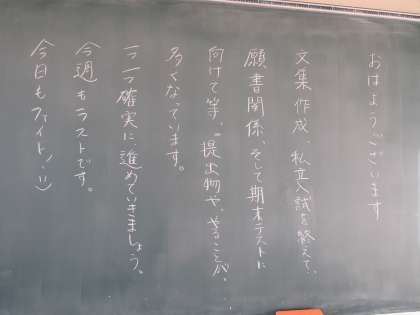 おはようございます
文集作成、私立入試を終えて、
願書関係、そして期末テストに
向けて等、。提出物や、やることが、
多くなっています。
一つ一つ確実に進めていきましょう。
今週もラストです。
今日もファイト!:)